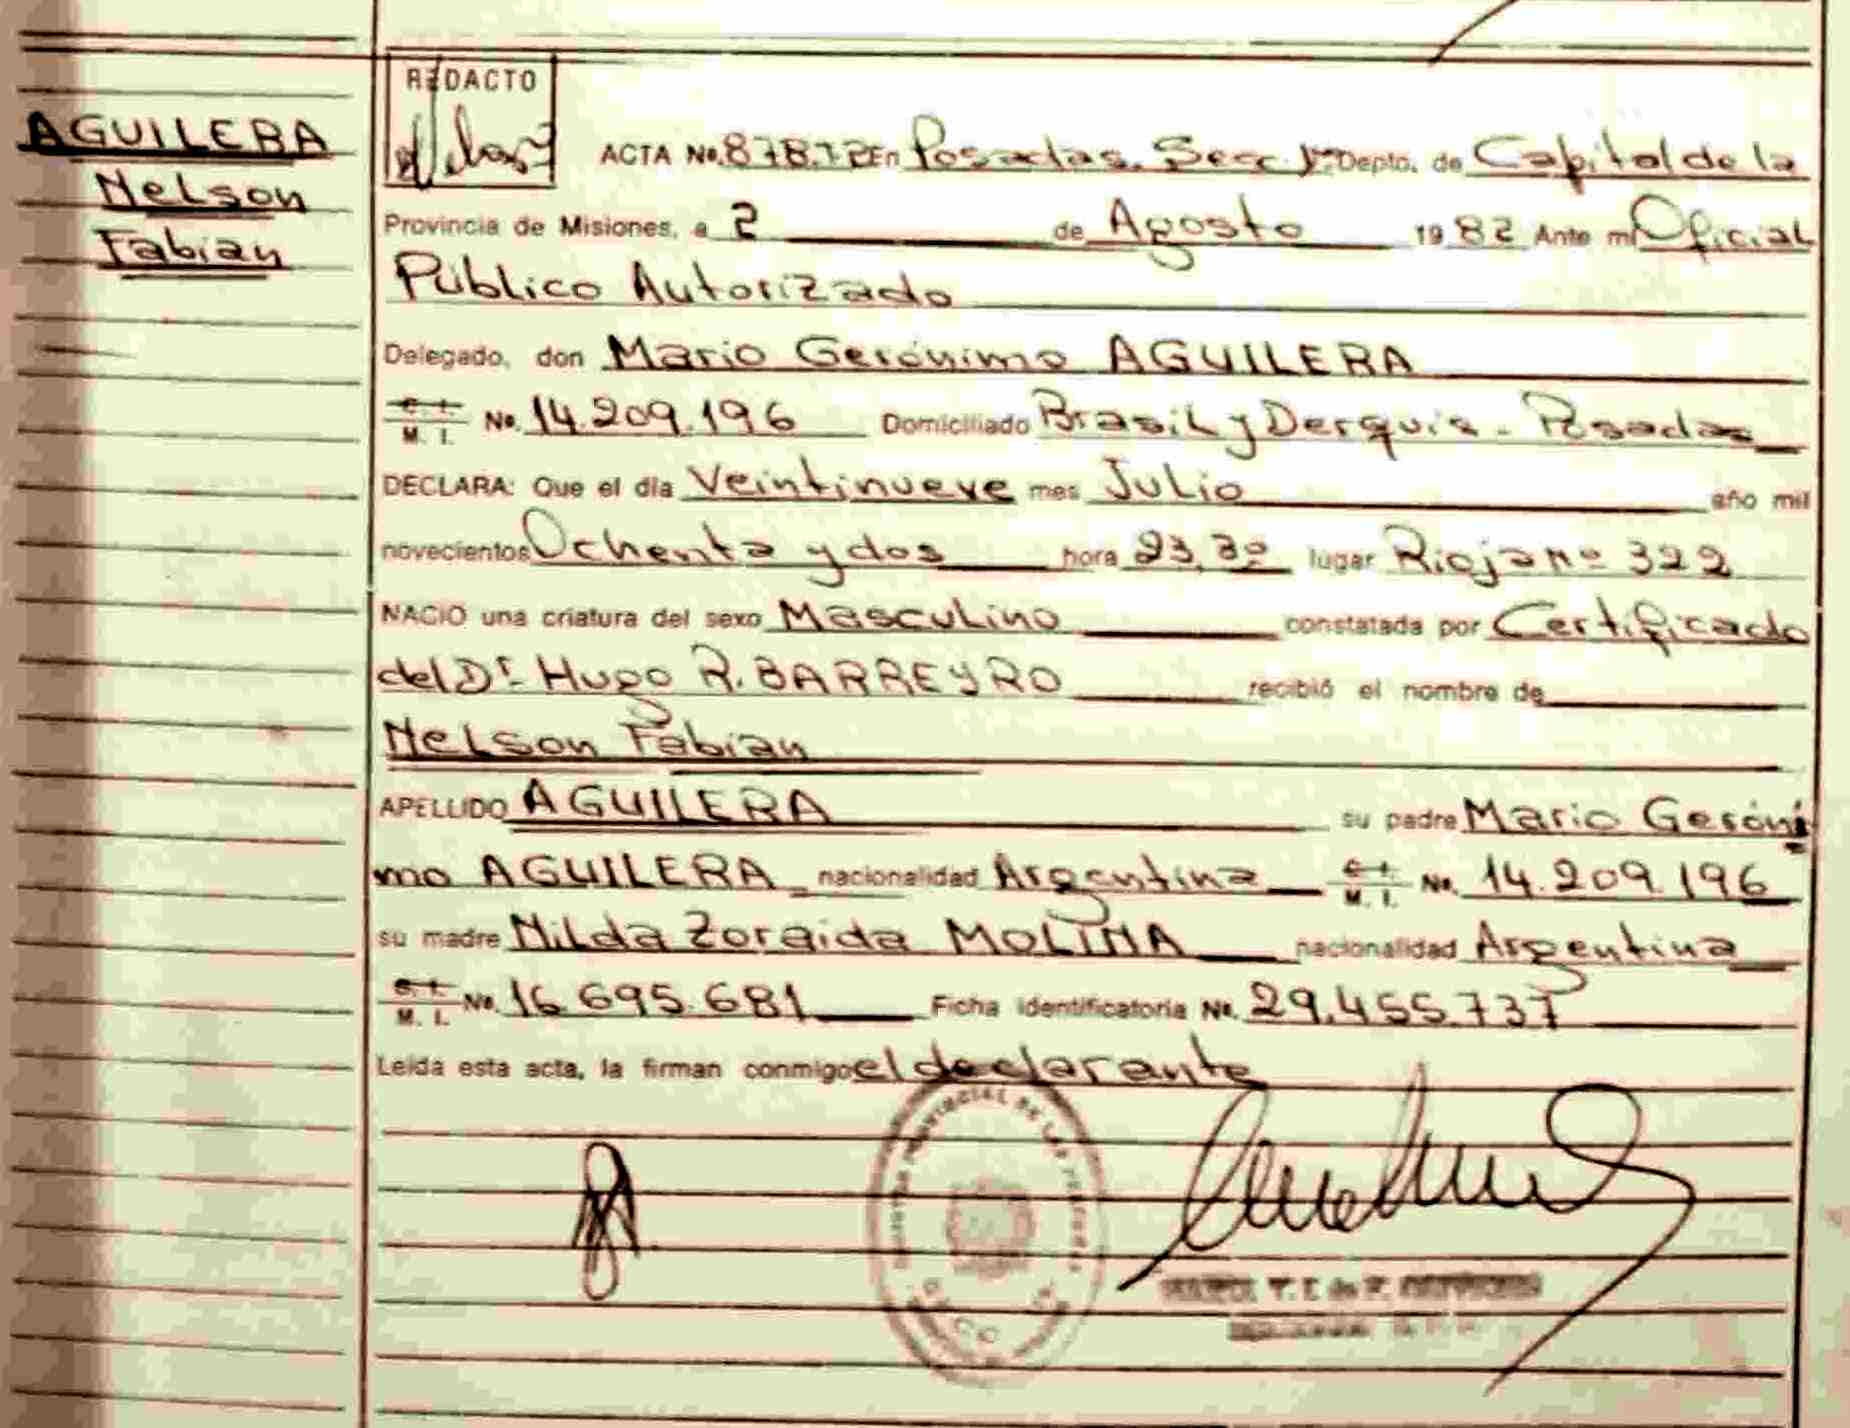 AGUILERA
Nelson
Fabian
REDACTO
ACTA No. 878.T2 En Posadas. Secc 1ra Depto. de Capital de la
Provincia de Misiones, a 2 de Agosto 1982 Ante mi Oficial
Público Autorizado
Delegado, don Mario Gerónimo AGUILERA
C. I. M. I. No. 14.209.196 Domiciliado Brasil y Derquis - Posadas
DECLARA: Que el día Veintinueve mes Julio año mil
novecientos Ochenta y dos hora 23,30 lugar Rioja Nº 322
NACIO una criatura del sexo Masculino constatada por Certificado
del Dr. Hugo R. BARREYRO recibió el nombre de
Nelson Fabian
APELLIDO AGUILERA su padre Mario Geróni
mo AGUILERA nacionalidad Argentina C. I. M. I. No. 14.209.196
su madre Nilda Zoraida MOLINA nacionalidad Argentina
C. I. M. I. No. 16.695.681 Ficha identificatoria No. 29.455.737
Leída esta acta, la firman conmigo el declarante
PROVINCIAL DE LAS PERSONAS